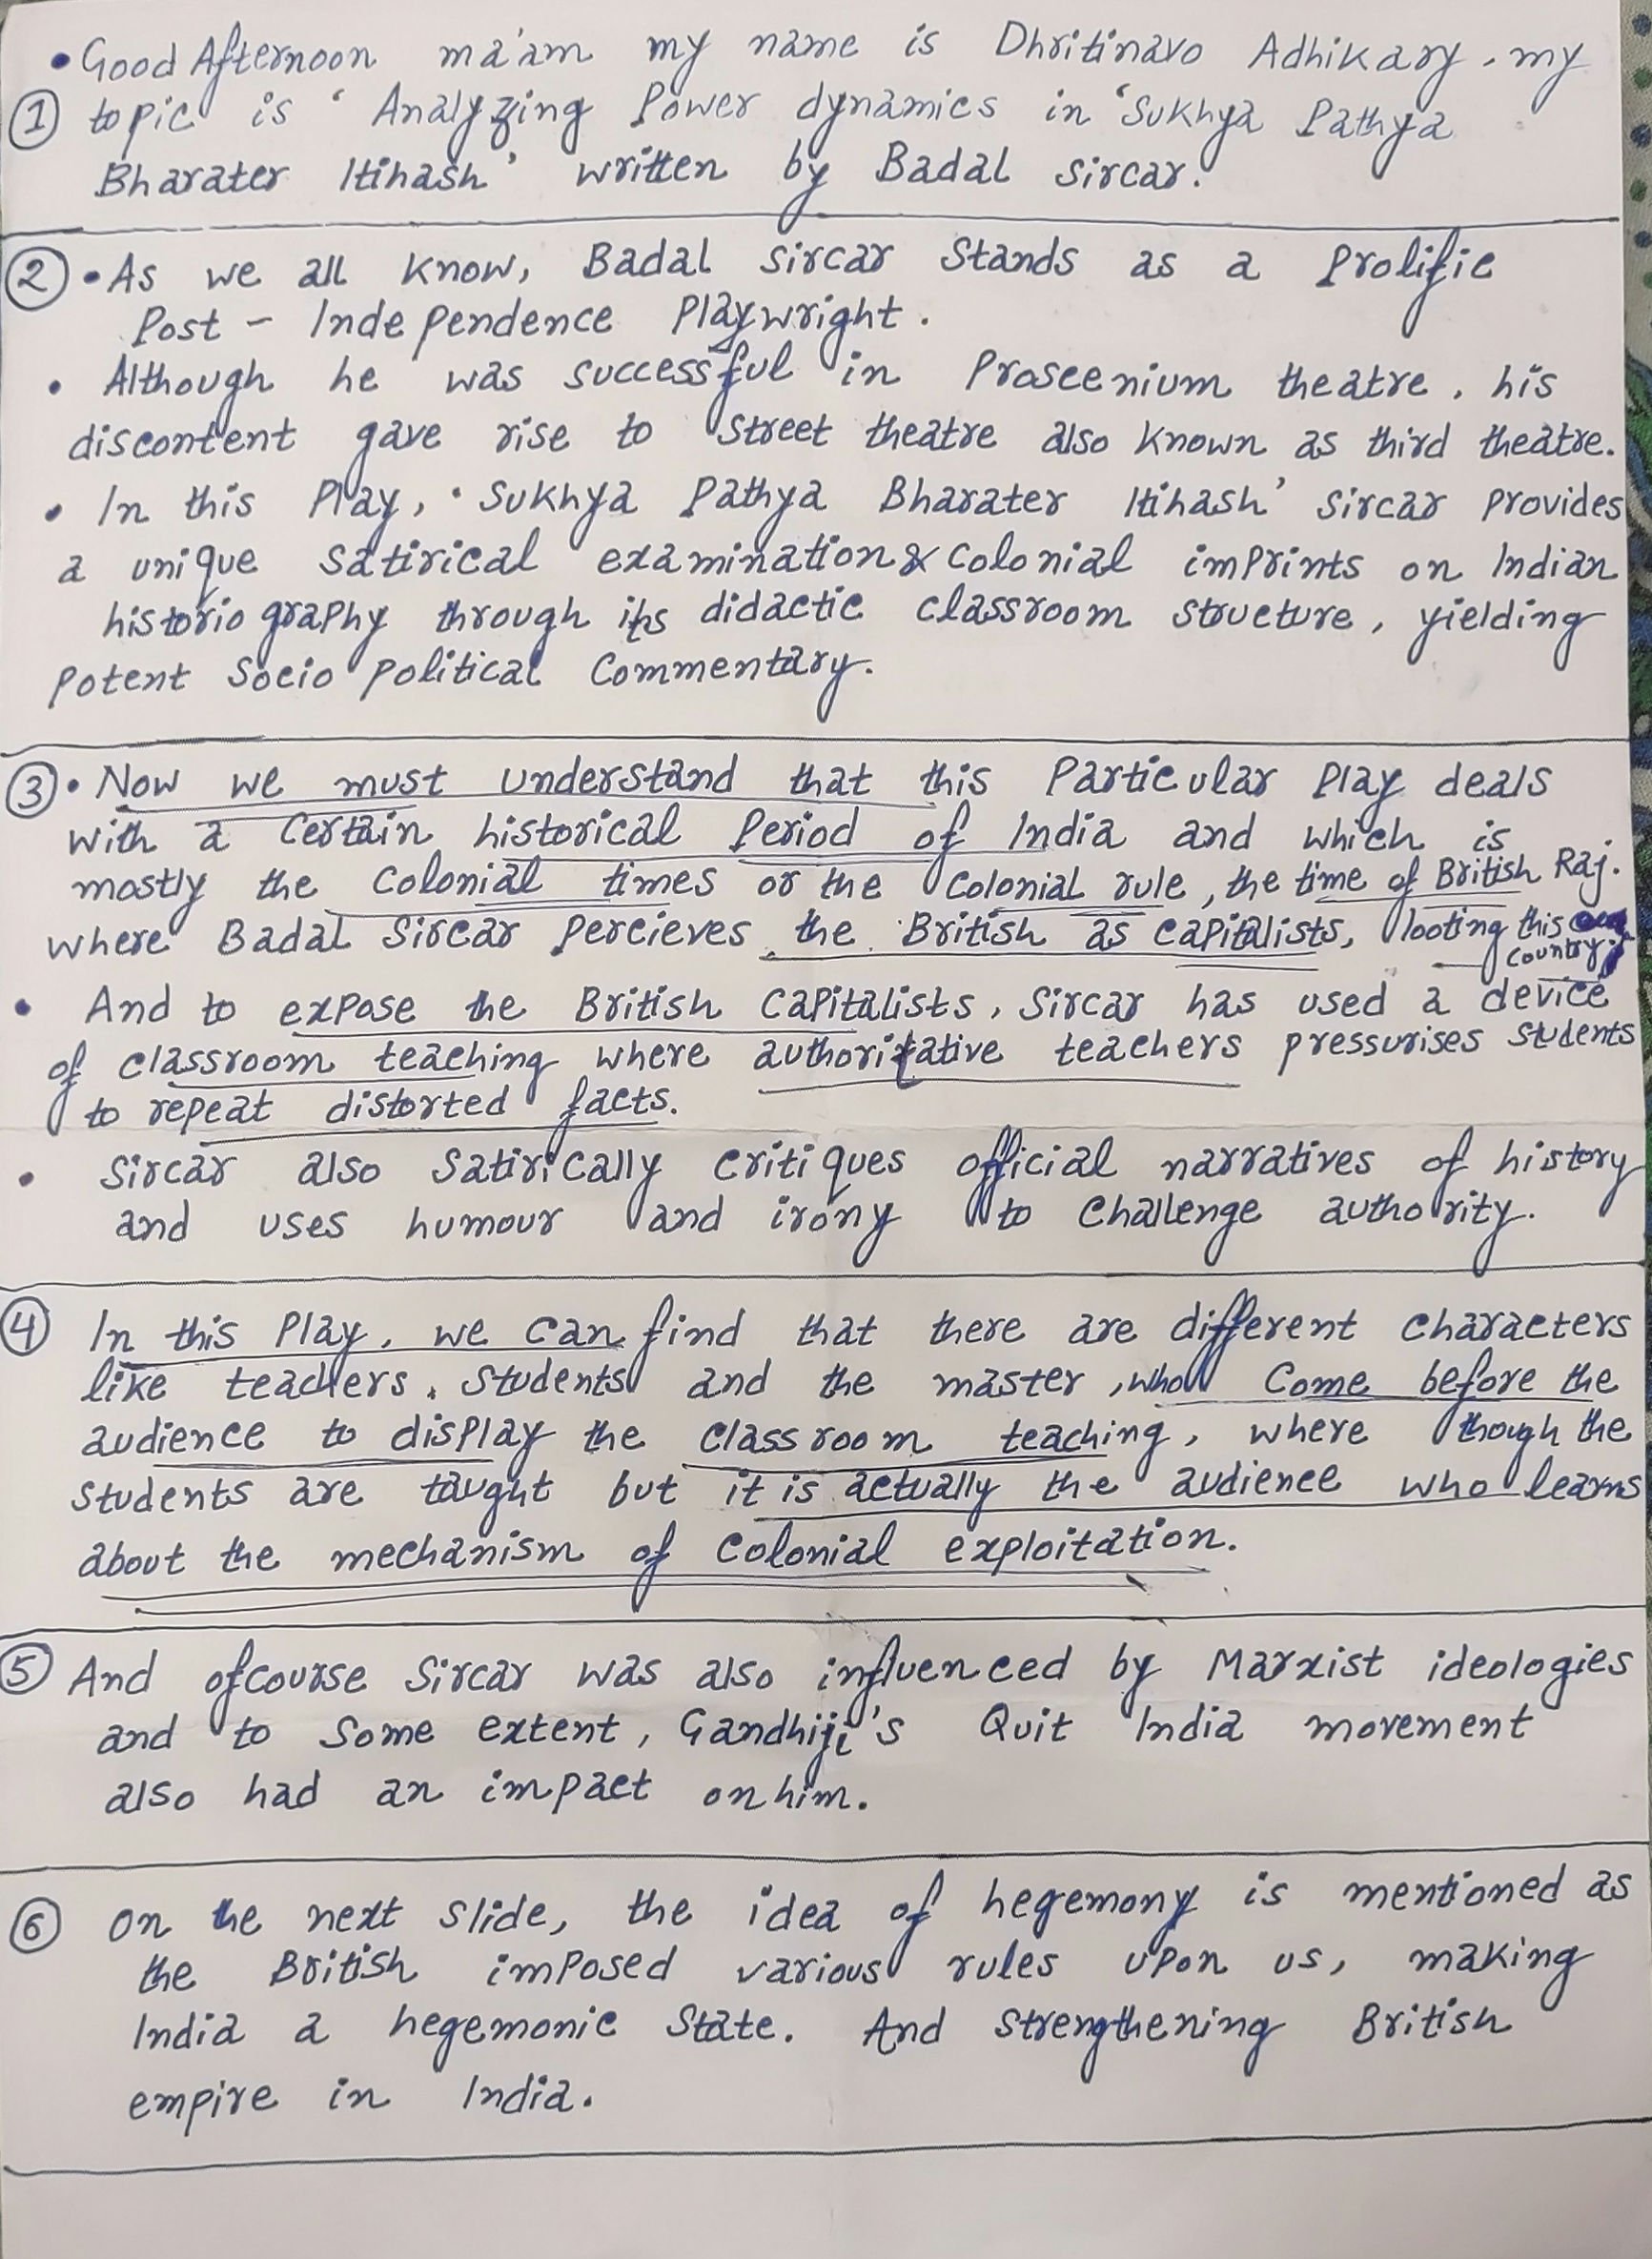 • Good Afternoon ma'am my name is Dhritinavo Adhikary, my
① topic is ‘Analyzing Power dynamics in ‘Sukhya Pathya
Bharater Itihash’ written by Badal Sircar.
② • As we all know, Badal Sircar Stands as a Prolific
Post - Independence Playwright.
• Although he was successful in Proscenium theatre, his
discontent gave rise to street theatre also known as third theatre.
• In this Play, ‘Sukhya Pathya Bharater Itihash’ Sircar provides
a unique satirical examination & colonial imprints on Indian
historiography through its didactic classroom structure, yielding
potent Socio political Commentary.
③ • Now we must understand that this Particular Play deals
with a certain historical Period of India and which is
mostly the colonial times or the colonial rule, the time of British Raj.
where Badal Sircar percieves the British as capitalists, looting this
country.
• And to expose the British Capitalists, Sircar has used a device
of classroom teaching where authoritative teachers pressurises students
to repeat distorted facts.
• Sircar also satirically critiques official narratives of history
and uses humour and irony to challenge authority.
④ In this Play, we can find that there are different characters
like teachers, students and the master, who come before the
audience to display the classroom teaching, where though the
students are taught but it is actually the audience who learns
about the mechanism of Colonial exploitation.
⑤ And ofcourse Sircar was also influenced by Marxist ideologies
and to some extent, Gandhiji's Quit India movement
also had an impact on him.
⑥ On the next slide, the idea of hegemony is mentioned as
the British imposed various rules upon us, making
India a hegemonic State. And strengthening British
empire in India.